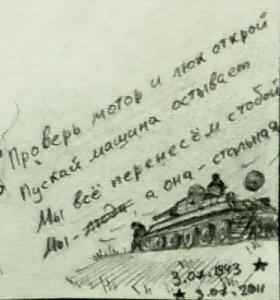 Проверь мотор и люк открой
Пускай машина остывает
Мы всё перенесём с тобой
Мы - люди, а она - стальная
3.07.1943
3.07.2011